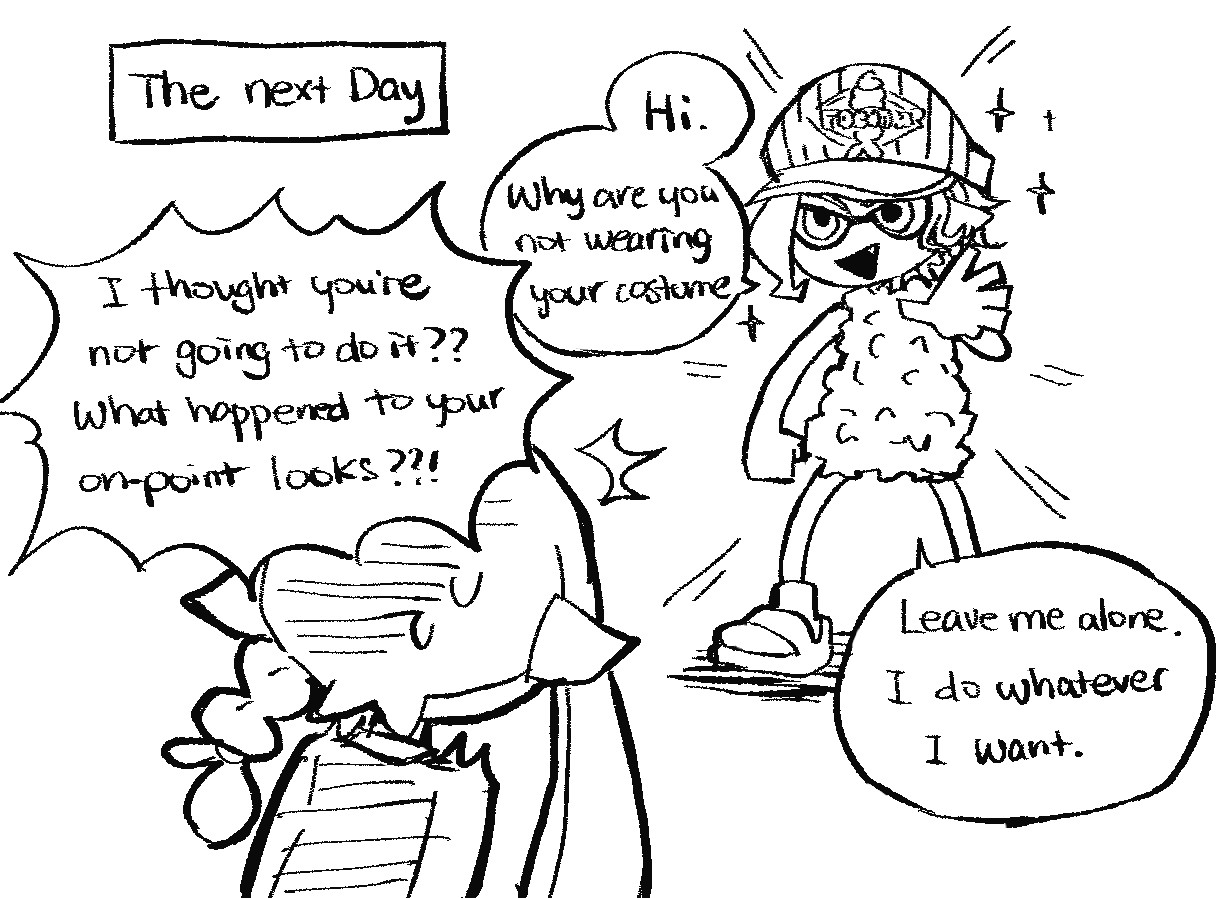 The next Day
Hi.
Why are you
not wearing
your costume
I thought you're
not going to do it??
What happened to your
on-point looks??!
Leave me alone.
I do whatever
I want.